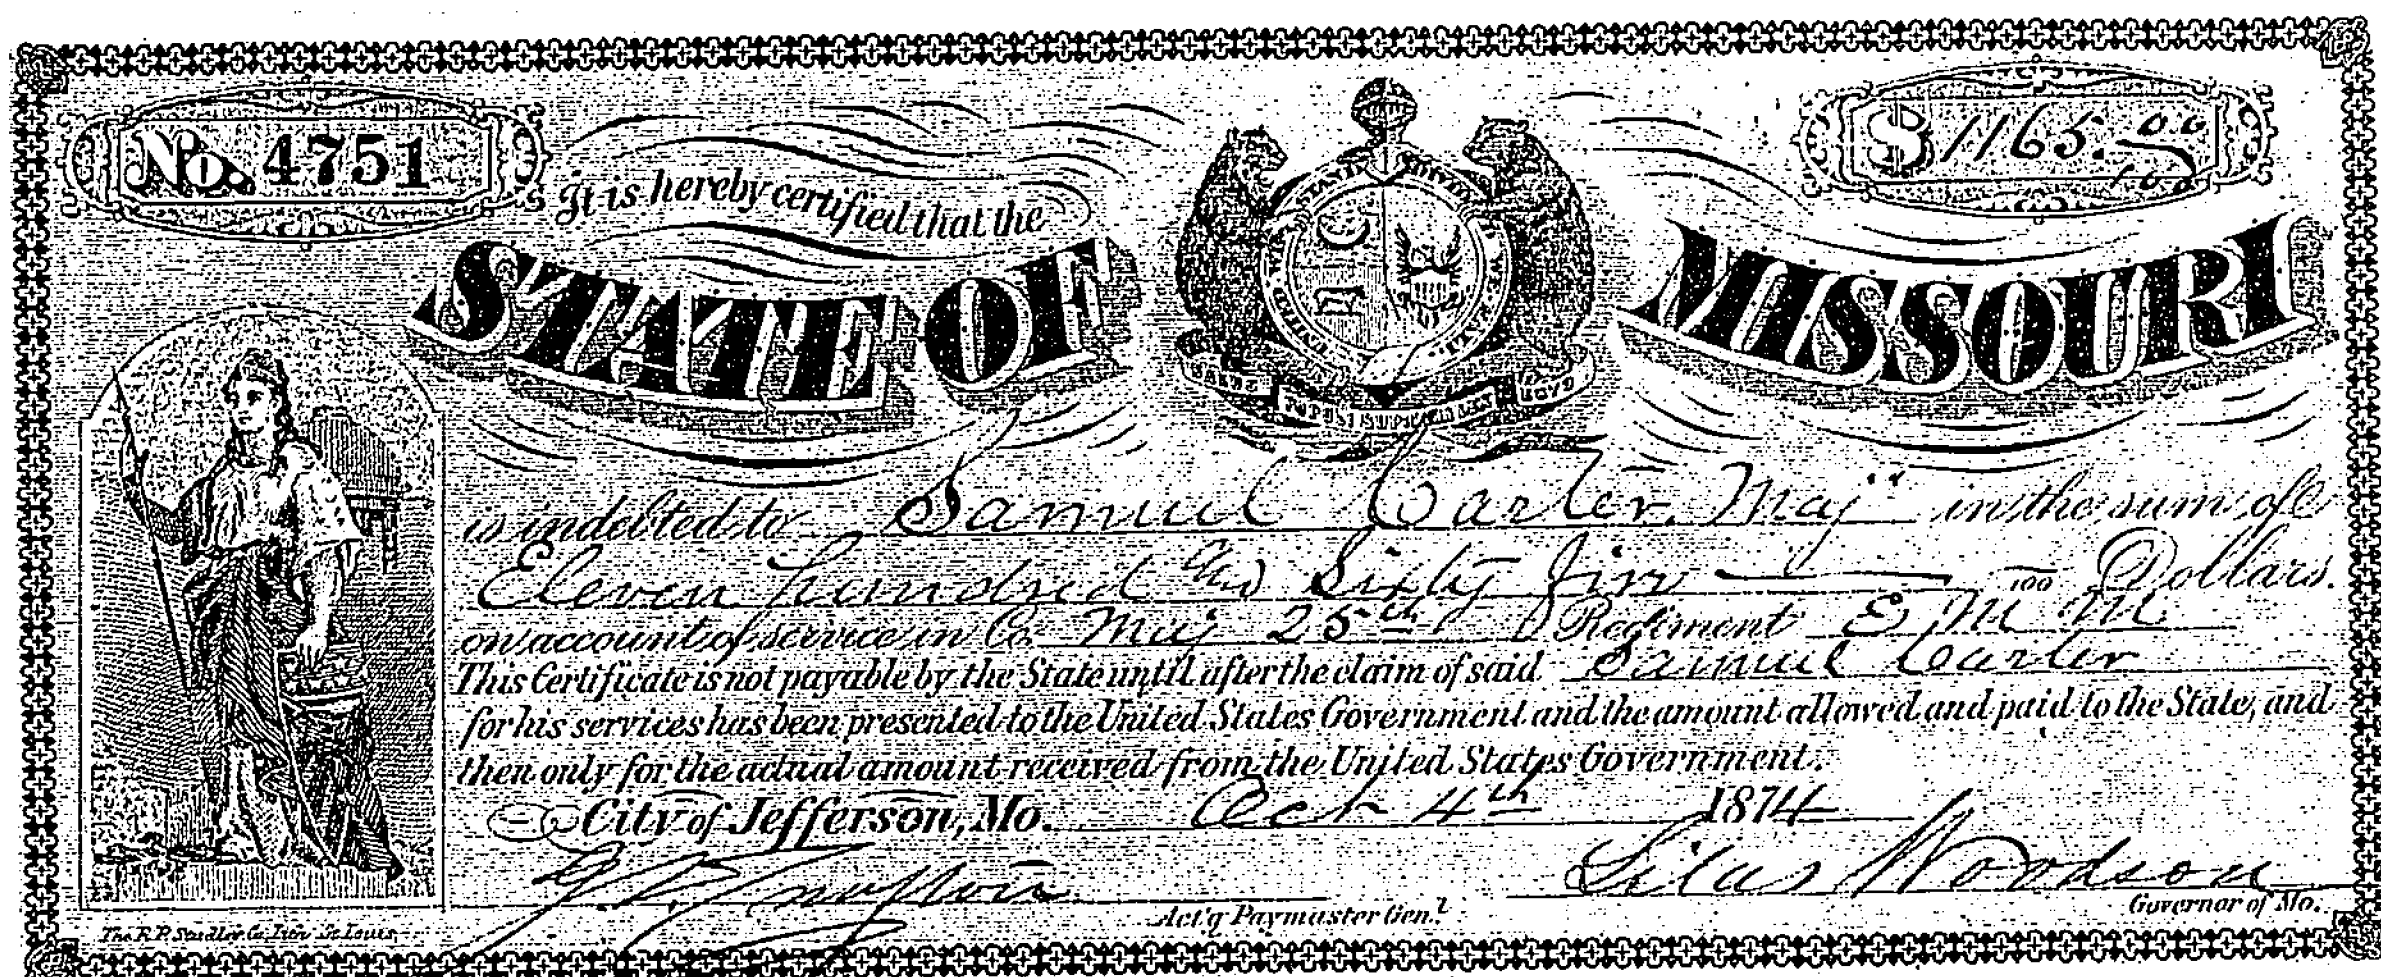 No. 4751
$1165.00/100
It is hereby certified that the
STATE OF MISSOURI
UNITED WE STAND DIVIDED WE FALL
SALUS POPULI SUPREMA LEX ESTO
is indebted to Samuel Carter Maj in the sum of
Eleven hundred and Sixty five 100 Dollars.
on account of service in Co. Maj 25th Regiment E M M
This Certificate is not payable by the State until after the claim of said Samuel Carter
for his services has been presented to the United States Government and the amount allowed and paid to the State, and
then only for the actual amount received from the United States Government.
City of Jefferson, Mo. Oct 4th 1874
Silas Woodson
Act'g Paymaster Gen.l
Governor of Mo.
The R.P. Studley Co. Lith. St. Louis